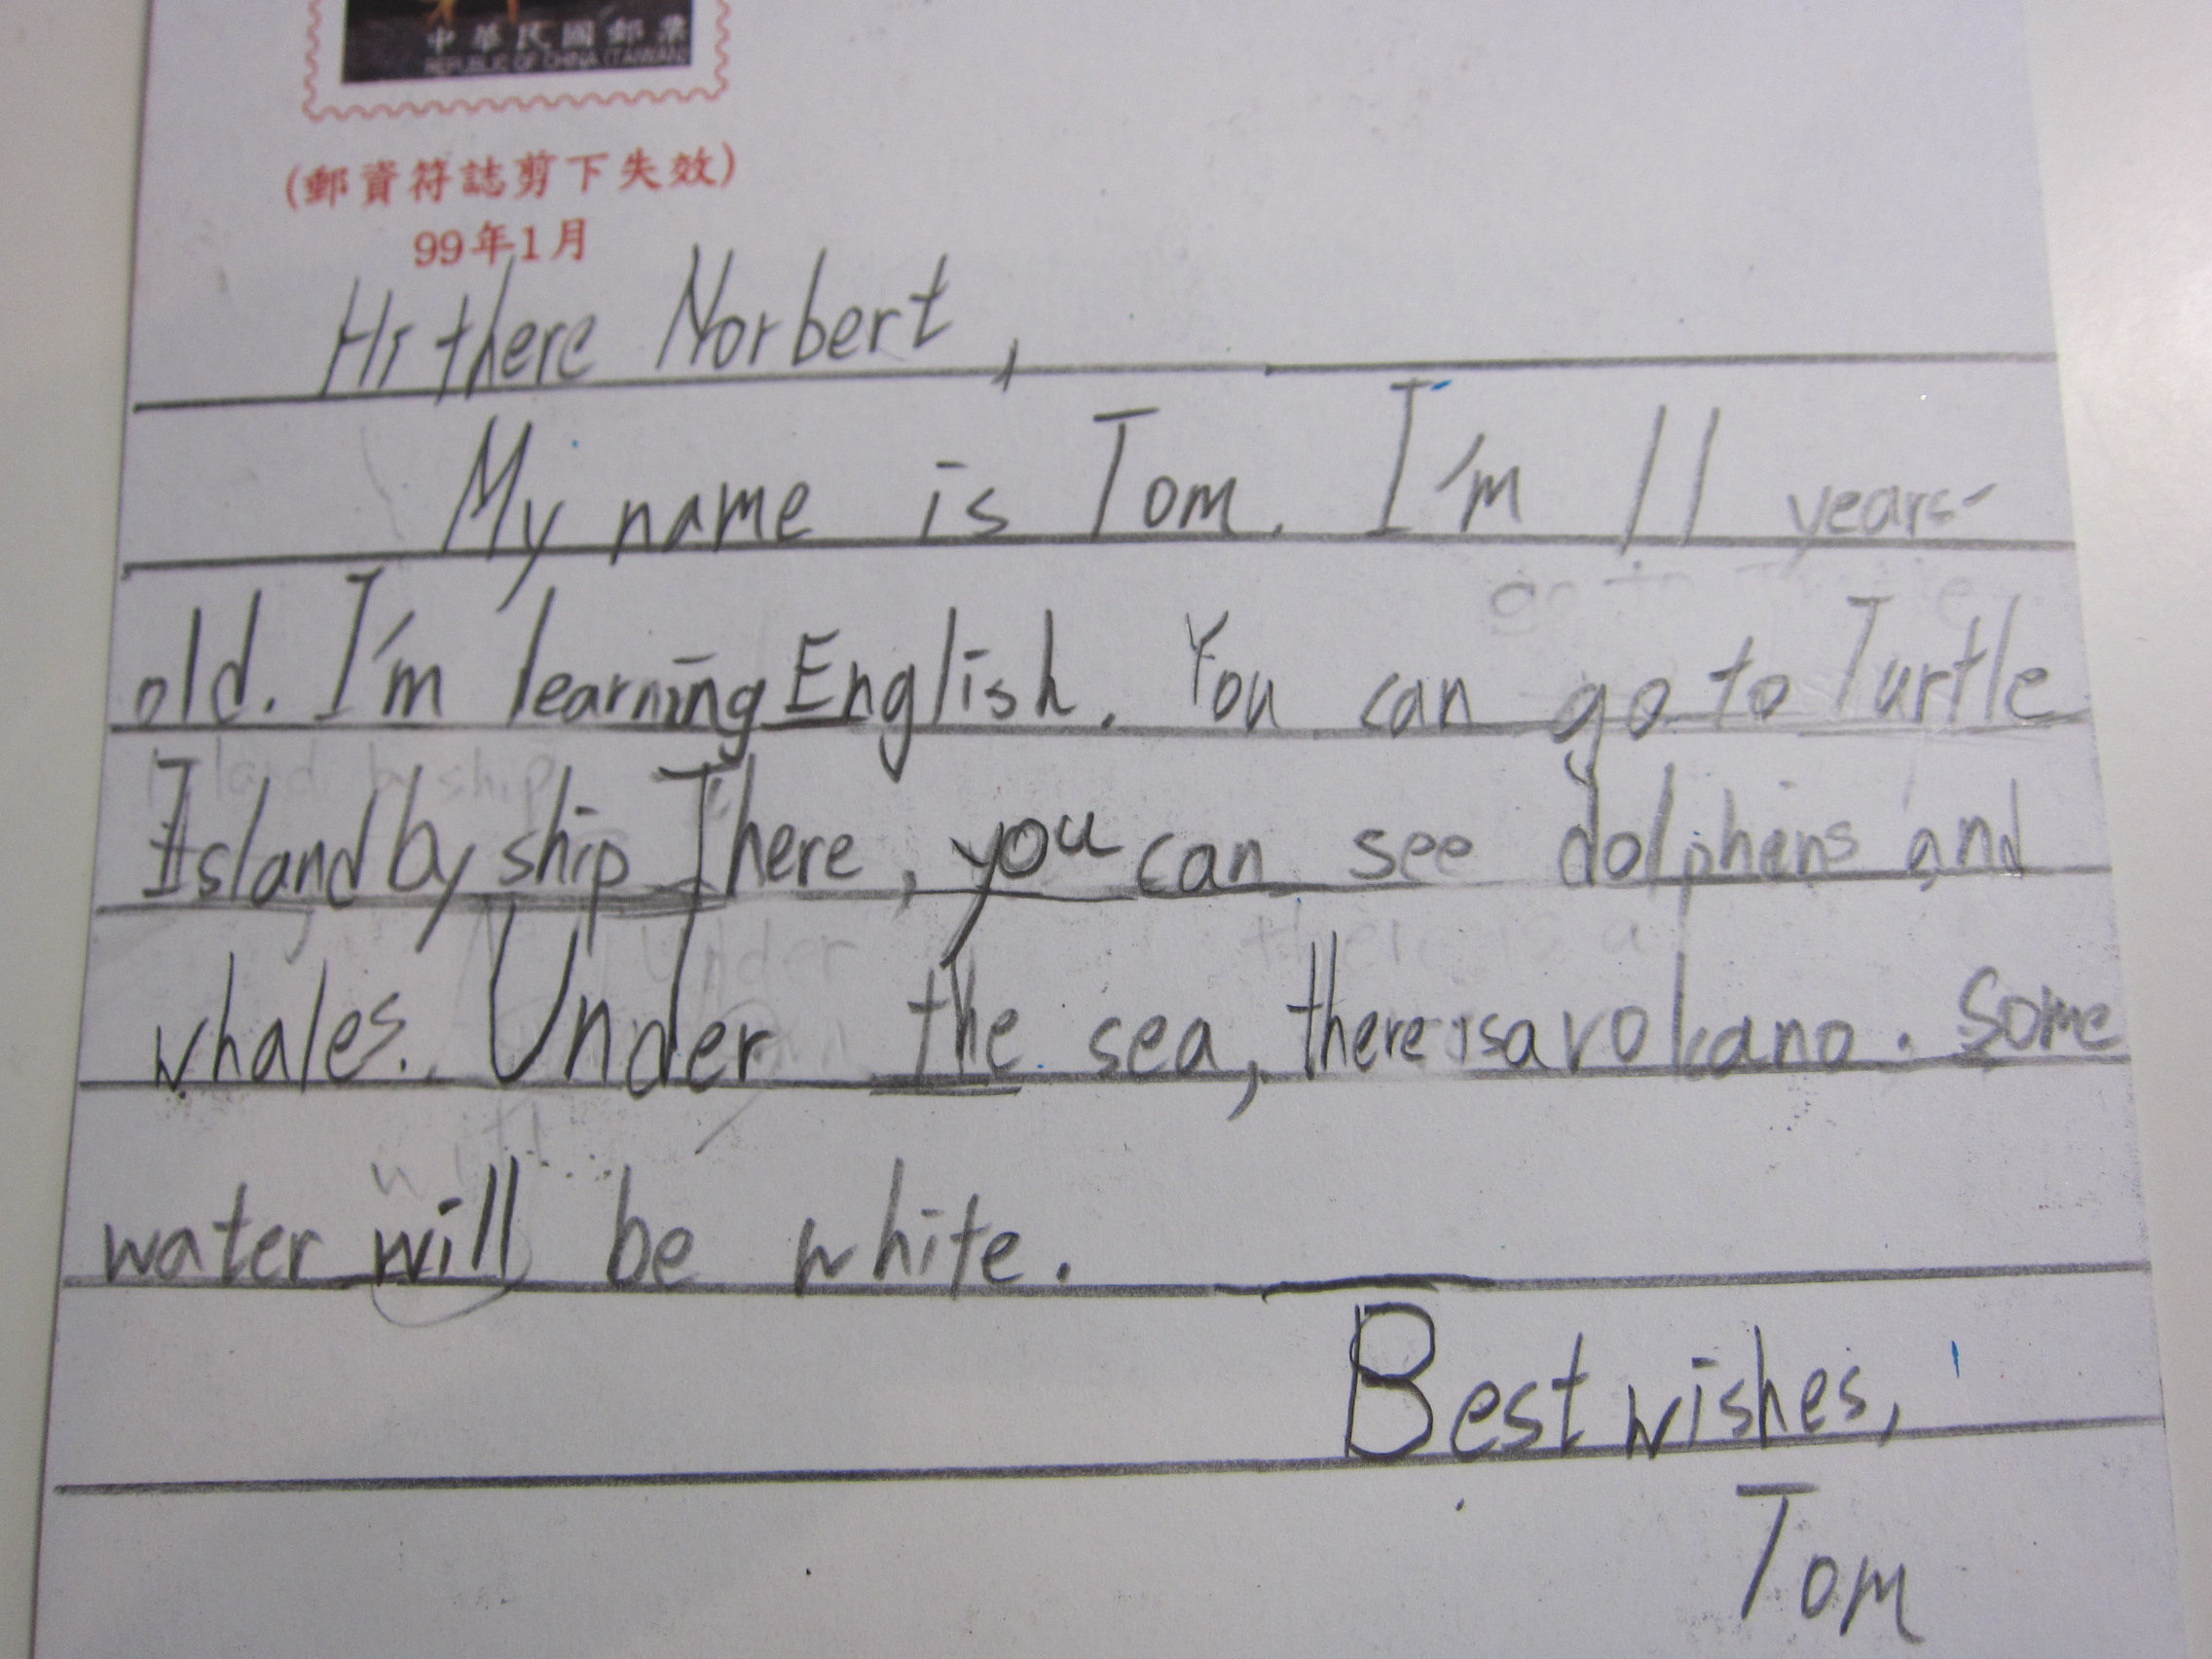 中華民國郵票
REPUBLIC OF CHINA (TAIWAN)
(郵資符誌剪下失效)
99年1月
Hi there Norbert,
My name is Tom. I'm 11 years-
old. I'm learning English. You can go to Turtle
Island by ship There, you can see dolphins and
whales. Under the sea, there is a volcano. Some
water will be white.
Best wishes,
Tom